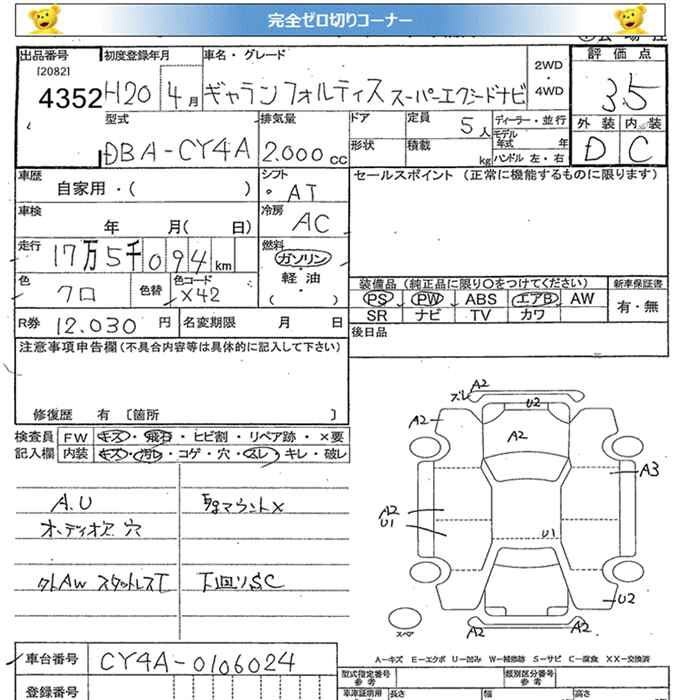 完全ゼロ切りコーナー
出品番号 初度登録年月 車名・グレード 2WD・4WD 評価点
[2082]
4352 H20 4月 ギャランフォルティス スーパーエクシードナビ 3.5
型式 排気量 ドア 定員 5人 ディーラー・並行 外装 内装
モデル年式 年
DBA-CY4A 2.000cc 形状 積載 kg ハンドル 左・右 D C
車歴 シフト セールスポイント (正常に機能するものに限ります)
自家用・( ) AT
車検 冷房
年 月( 日) AC
走行 燃料
17万5千094km ガソリン
色 色替 色コード 軽油 装備品 (純正品に限り○をつけてください) 新車保証書
クロ X42 ( ・ ) PS PW ABS エアB AW 有・無
R券 12.030円 名変期限 月 日 SR ナビ TV カワ
注意事項申告欄(不具合内容等は具体的に記入して下さい) 後日品
修復歴 有 〔箇所 〕
検査員 FW キズ・飛石・ヒビ割・リペア跡・×要
記入欄 内装 キズ・汚レ・コゲ・穴・スレ・キレ・破レ
A.U
オーディオ 穴
スタッドレス
マウント×
下回りSC
ズレ A2
U2
A2
A2
A3
A2
U1
U1
U2
A2
A2
スペア
A-キズ E-エクボ U-凹み W-補修跡 S-サビ C-腐食 XX-交換済
車台番号 CY4A-0106024
登録番号
型式指定番号 参考 類別区分番号 参考
長さ 幅 高さ